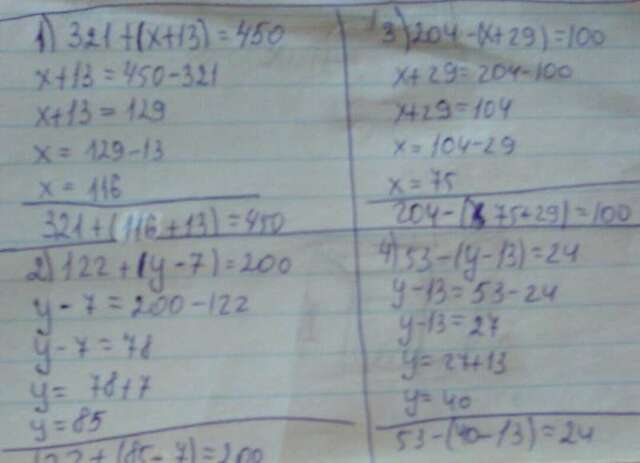 1) 321+(x+13)=450
x+13=450-321
x+13=129
x= 129-13
x= 116
321+(116+13)=450
2) 122+(y-7)=200
y-7=200-122
y-7=78
y= 78+7
y=85
122+(85-7)=200
3) 204-(x+29)=100
x+29=204-100
x+29=104
x=104-29
x=75
204-(75+29)=100
4) 53-(y-13)=24
y-13=53-24
y-13=27
y=27+13
y=40
53-(40-13)=24